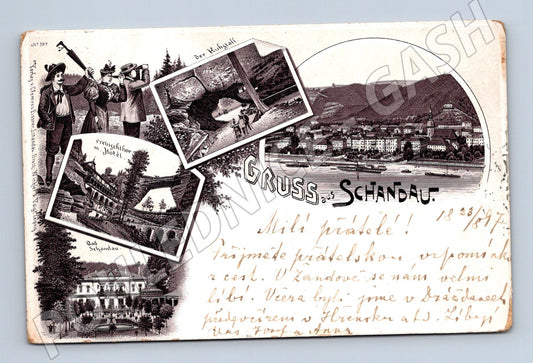 No 381
Der Kuhstall
Prebischthor
m. Hotel
Bad
Schandau.
GRUSS aus SCHANDAU.
18 23/8 97
Milí přátelé!
Přijměte přátelskou vzpomínku
z cest. V Žandově se nám velmi
líbí. Včera byli jsme v Drážďanech
předevčírem v Hřensku atd. Líbají
Vás Josef a Anna